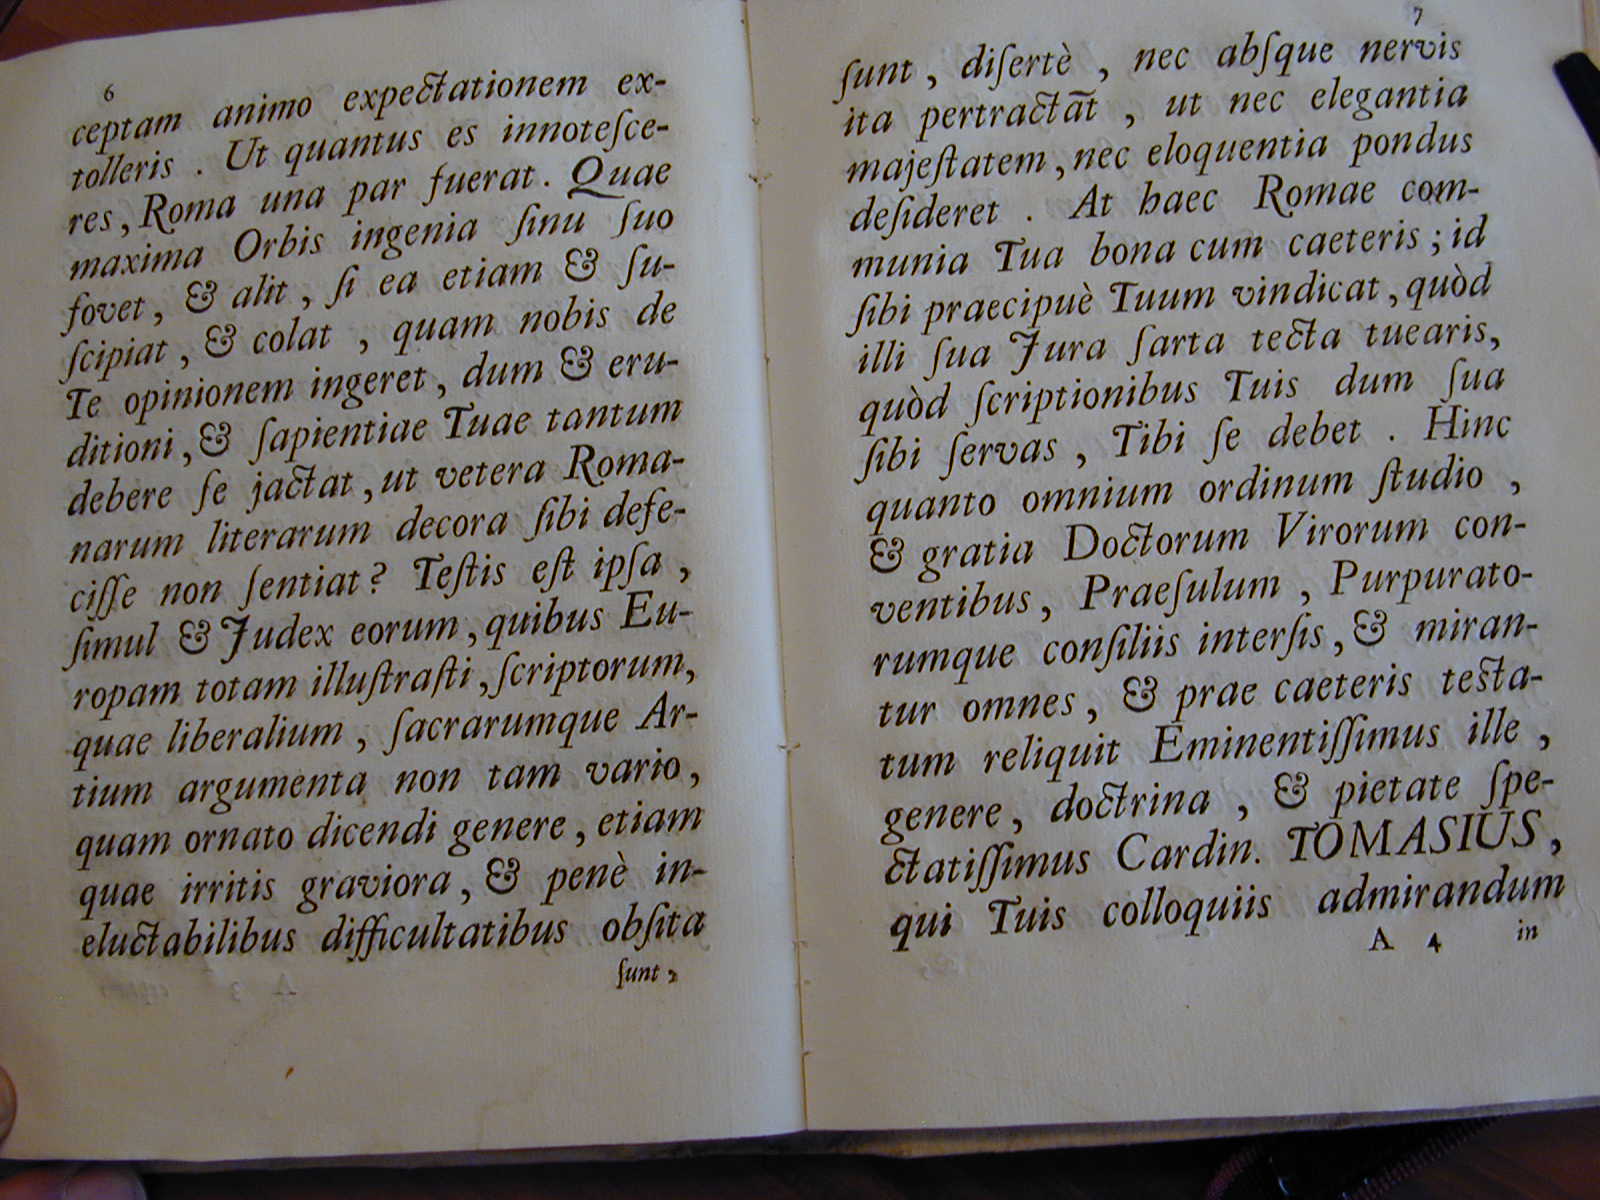 6
ceptam animo expectationem ex-
tolleris . Ut quantus es innoteſce-
res, Roma una par fuerat. Quae
maxima Orbis ingenia ſinu ſuo
fovet, & alit, ſi ea etiam & ſu-
ſcipiat, & colat , quam nobis de
Te opinionem ingeret, dum & eru-
ditioni, & ſapientiae Tuae tantum
debere ſe jactat, ut vetera Roma-
narum literarum decora ſibi defe-
ciſſe non ſentiat? Teſtis eſt ipſa ,
ſimul & Judex eorum, quibus Eu-
ropam totam illuſtraſti, ſcriptorum,
quae liberalium , ſacrarumque Ar-
tium argumenta non tam vario,
quam ornato dicendi genere, etiam
quae irritis graviora, & penè in-
eluctabilibus difficultatibus obſita
ſunt,
7
ſunt , diſertè , nec abſque nervis
ita pertractāt , ut nec elegantia
majeſtatem, nec eloquentia pondus
deſideret . At haec Romae com-
munia Tua bona cum caeteris; id
ſibi praecipuè Tuum vindicat, quòd
illi ſua Jura ſarta tecta tuearis,
quòd ſcriptionibus Tuis dum ſua
ſibi ſervas , Tibi ſe debet . Hinc
quanto omnium ordinum ſtudio ,
& gratia Doctorum Virorum con-
ventibus, Praeſulum , Purpurato-
rumque conſiliis interſis, & miran-
tur omnes, & prae caeteris teſta-
tum reliquit Eminentiſſimus ille ,
genere, doctrina , & pietate ſpe-
ctatiſſimus Cardin. TOMASIUS,
qui Tuis colloquiis admirandum
A 4 in